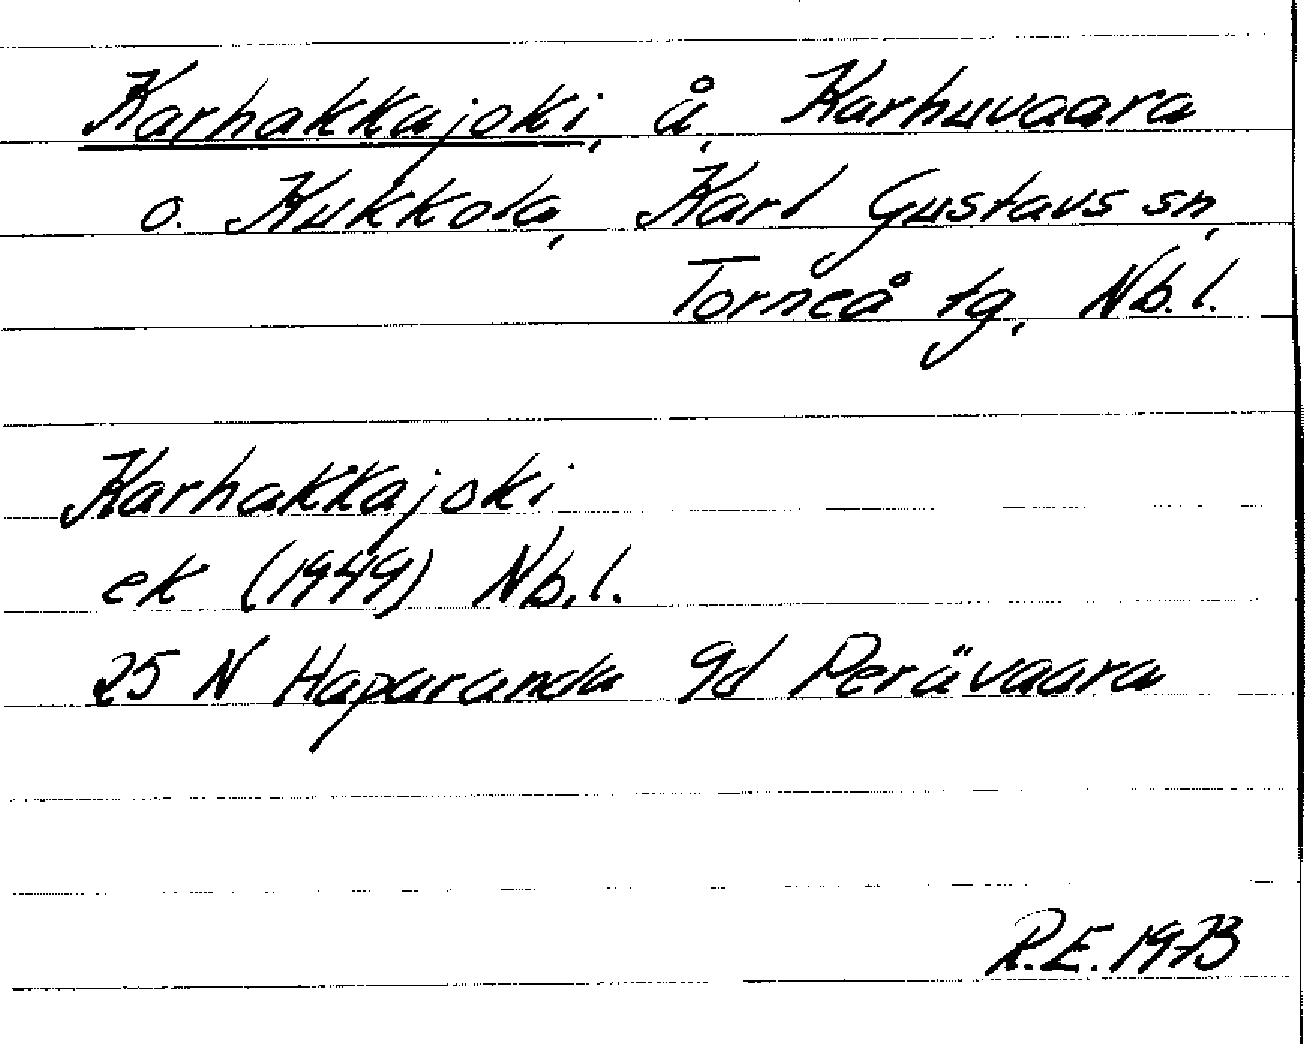 Karhakkajoki, å, Karhuvaara
o. Kukkola, Karl Gustavs sn,
Torneå tg, Nb.l.
Karhakkajoki
ek (1949) Nb.l.
25 N Haparanda 9d Perävaara
R.E. 1973